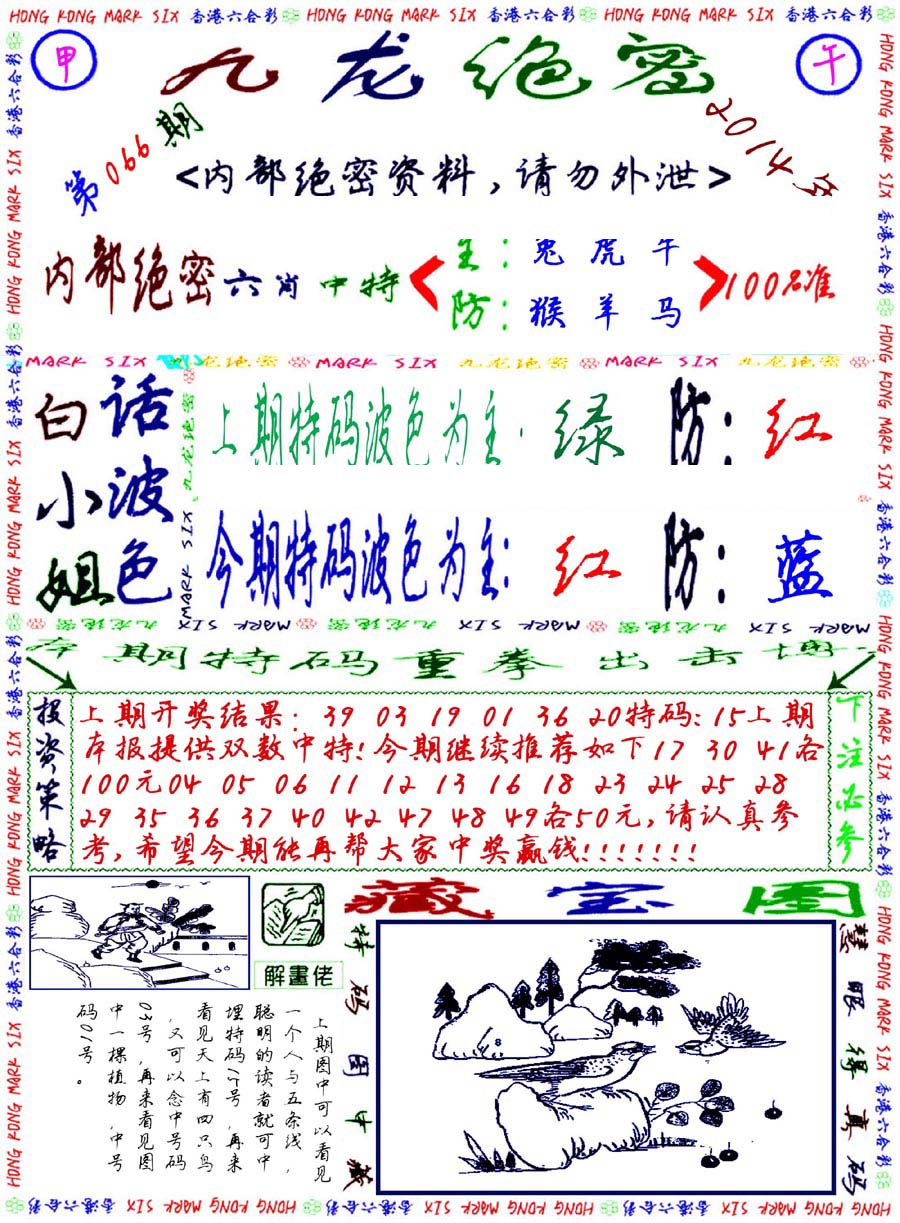 HONG KONG MARK SIX 香港六合彩 HONG KONG MARK SIX 香港六合彩 HONG KONG MARK SIX 香港六合彩
甲
九龙绝密
午
第066期
2014年
<内部绝密资料,请勿外泄>
内部绝密六肖中特
主:兔虎牛
防:猴羊马
100%准
MARK SIX 九龙绝密 MARK SIX 九龙绝密 MARK SIX 九龙绝密
白小姐
话波色
上期特码波色为主:绿 防:红
今期特码波色为主:红 防:蓝
九龙绝密 MARK SIX
本期特码重拳出击博
投资策略
上期开奖结果:39 03 19 01 36 20特码:15上期
本报提供双数中特!今期继续推荐如下17 30 41各
100元04 05 06 11 12 13 16 18 23 24 25 28
29 35 36 37 40 42 47 48 49各50元,请认真参
考,希望今期能再帮大家中奖赢钱!!!!!!!
下注必参
藏宝图
解畫佬
特码图中藏
慧眼得真码
上期图中可以看见
一个人与五条线,
聪明的读者就可中
埋特码15号,再来
看见天上有四只鸟
,又可以念中号码
03号,再来看见图
中一棵植物,中号
码01号。
HONG KONG MARK SIX 香港六合彩 HONG KONG MARK SIX 香港六合彩 HONG KONG MARK SIX 香港六合彩